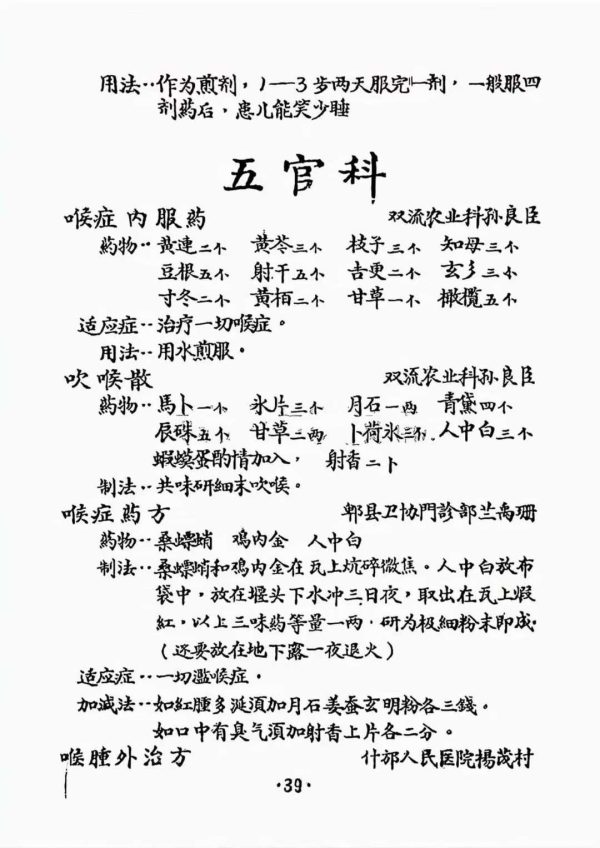 用法··作为煎剂，1—3步两天服完一剂，一般服四
剂药后，患儿能笑少睡
五官科
喉症内服药 双流农业科孙良臣
药物··黄連二个 黄芩三个 枝子三个 知母三个
豆根五个 射干五个 吉更二个 玄乡三个
寸冬二个 黄栢二个 甘草一个 橄榄五个
适应症··治疗一切喉症。
用法··用水煎服。
吹喉散 双流农业科孙良臣
药物··馬卜一个 氷片三个 月石一两 青黛四个
辰硃五个 甘草三两 卜荷氷三个 人中白三个
蝦蟆蛋酌情加入， 射香二卜
制法··共味研細末吹喉。
喉症药方 郫县卫协門診部兰禹珊
药物··桑螵蛸 鸡内金 人中白
制法··桑螵蛸和鸡内金在瓦上炕碎微焦。人中白放布
袋中，放在堰头下水冲三日夜，取出在瓦上煆
紅，以上三味药等量一两，研为极細粉末即成·
（还要放在地下露一夜退火）
适应症··一切濫喉症。
加减法··如紅腫多涎須加月石姜蚕玄明粉各三錢。
如口中有臭气須加射香上片各二分。
喉腫外治方 什邡人民医院揚茂村
·39·